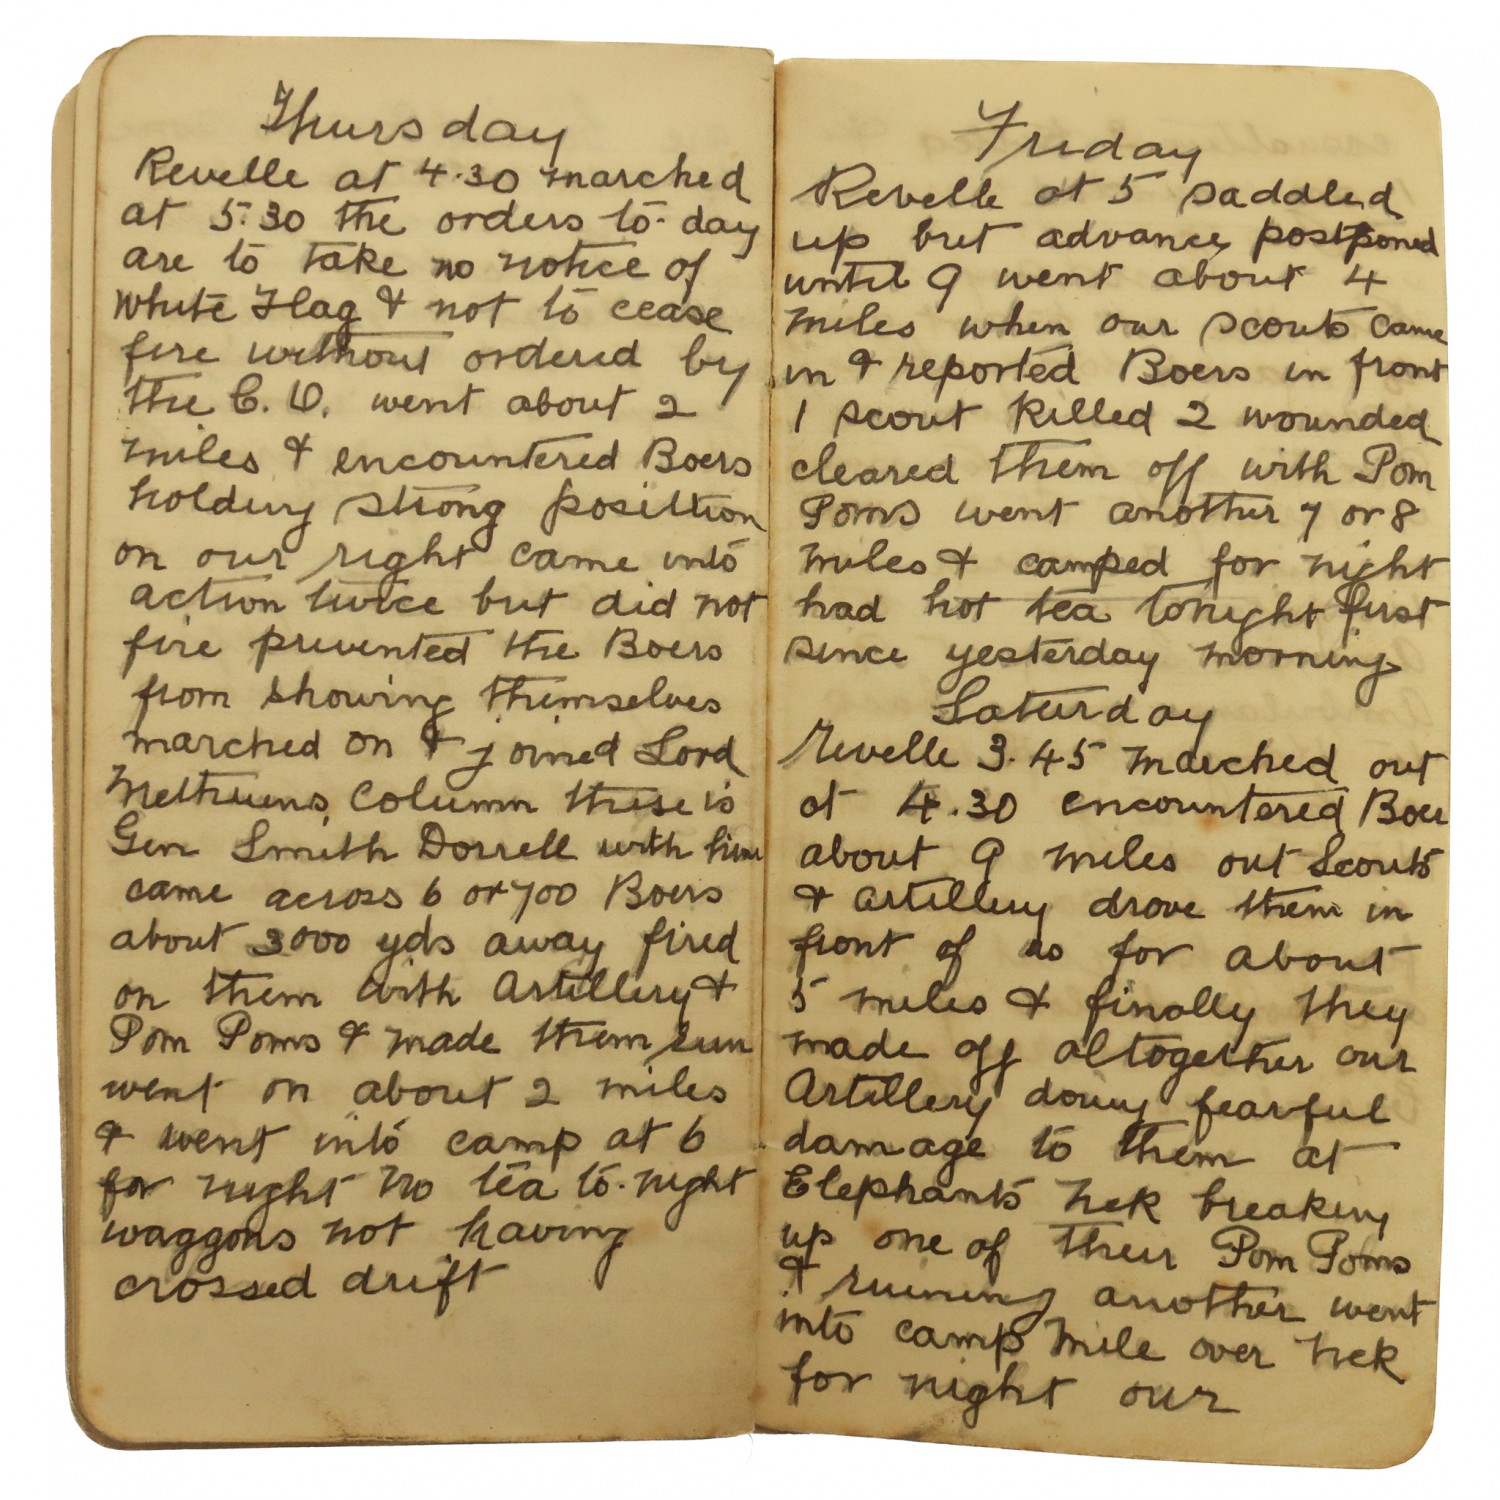 Thursday
Revelle at 4.30 marched
at 5.30 the orders to-day
are to take no notice of
White Flag & not to cease
fire without ordered by
the C.O. went about 2
miles & encountered Boers
holding strong posittion
on our right came into
action twice but did not
fire prevented the Boers
from showing themselves
marched on & joined Lord
Methuens Column these is
Gen Smith Dorrell with him
came across 6 or 700 Boers
about 3000 yds away fired
on them with Artillery &
Pom Poms & made them run
went on about 2 miles
& went into camp at 6
for night no tea to-night
waggons not having
crossed drift
Friday
Revelle at 5 saddled
up but advance postponed
until 9 went about 4
miles when our scouts came
in & reported Boers in front
1 scout killed 2 wounded
cleared them off with Pom
Poms went another 7 or 8
miles & camped for night
had hot tea tonight first
since yesterday morning
Saturday
Revelle 3.45 marched out
at 4.30 encountered Boer
about 9 miles out Scouts
& Artillery drove them in
front of us for about
5 miles & finally they
made off altogether our
Artillery doing fearful
damage to them at
Elephants Nek breaking
up one of their Pom Poms
& ruining another went
into camp mile over Nek
for night our